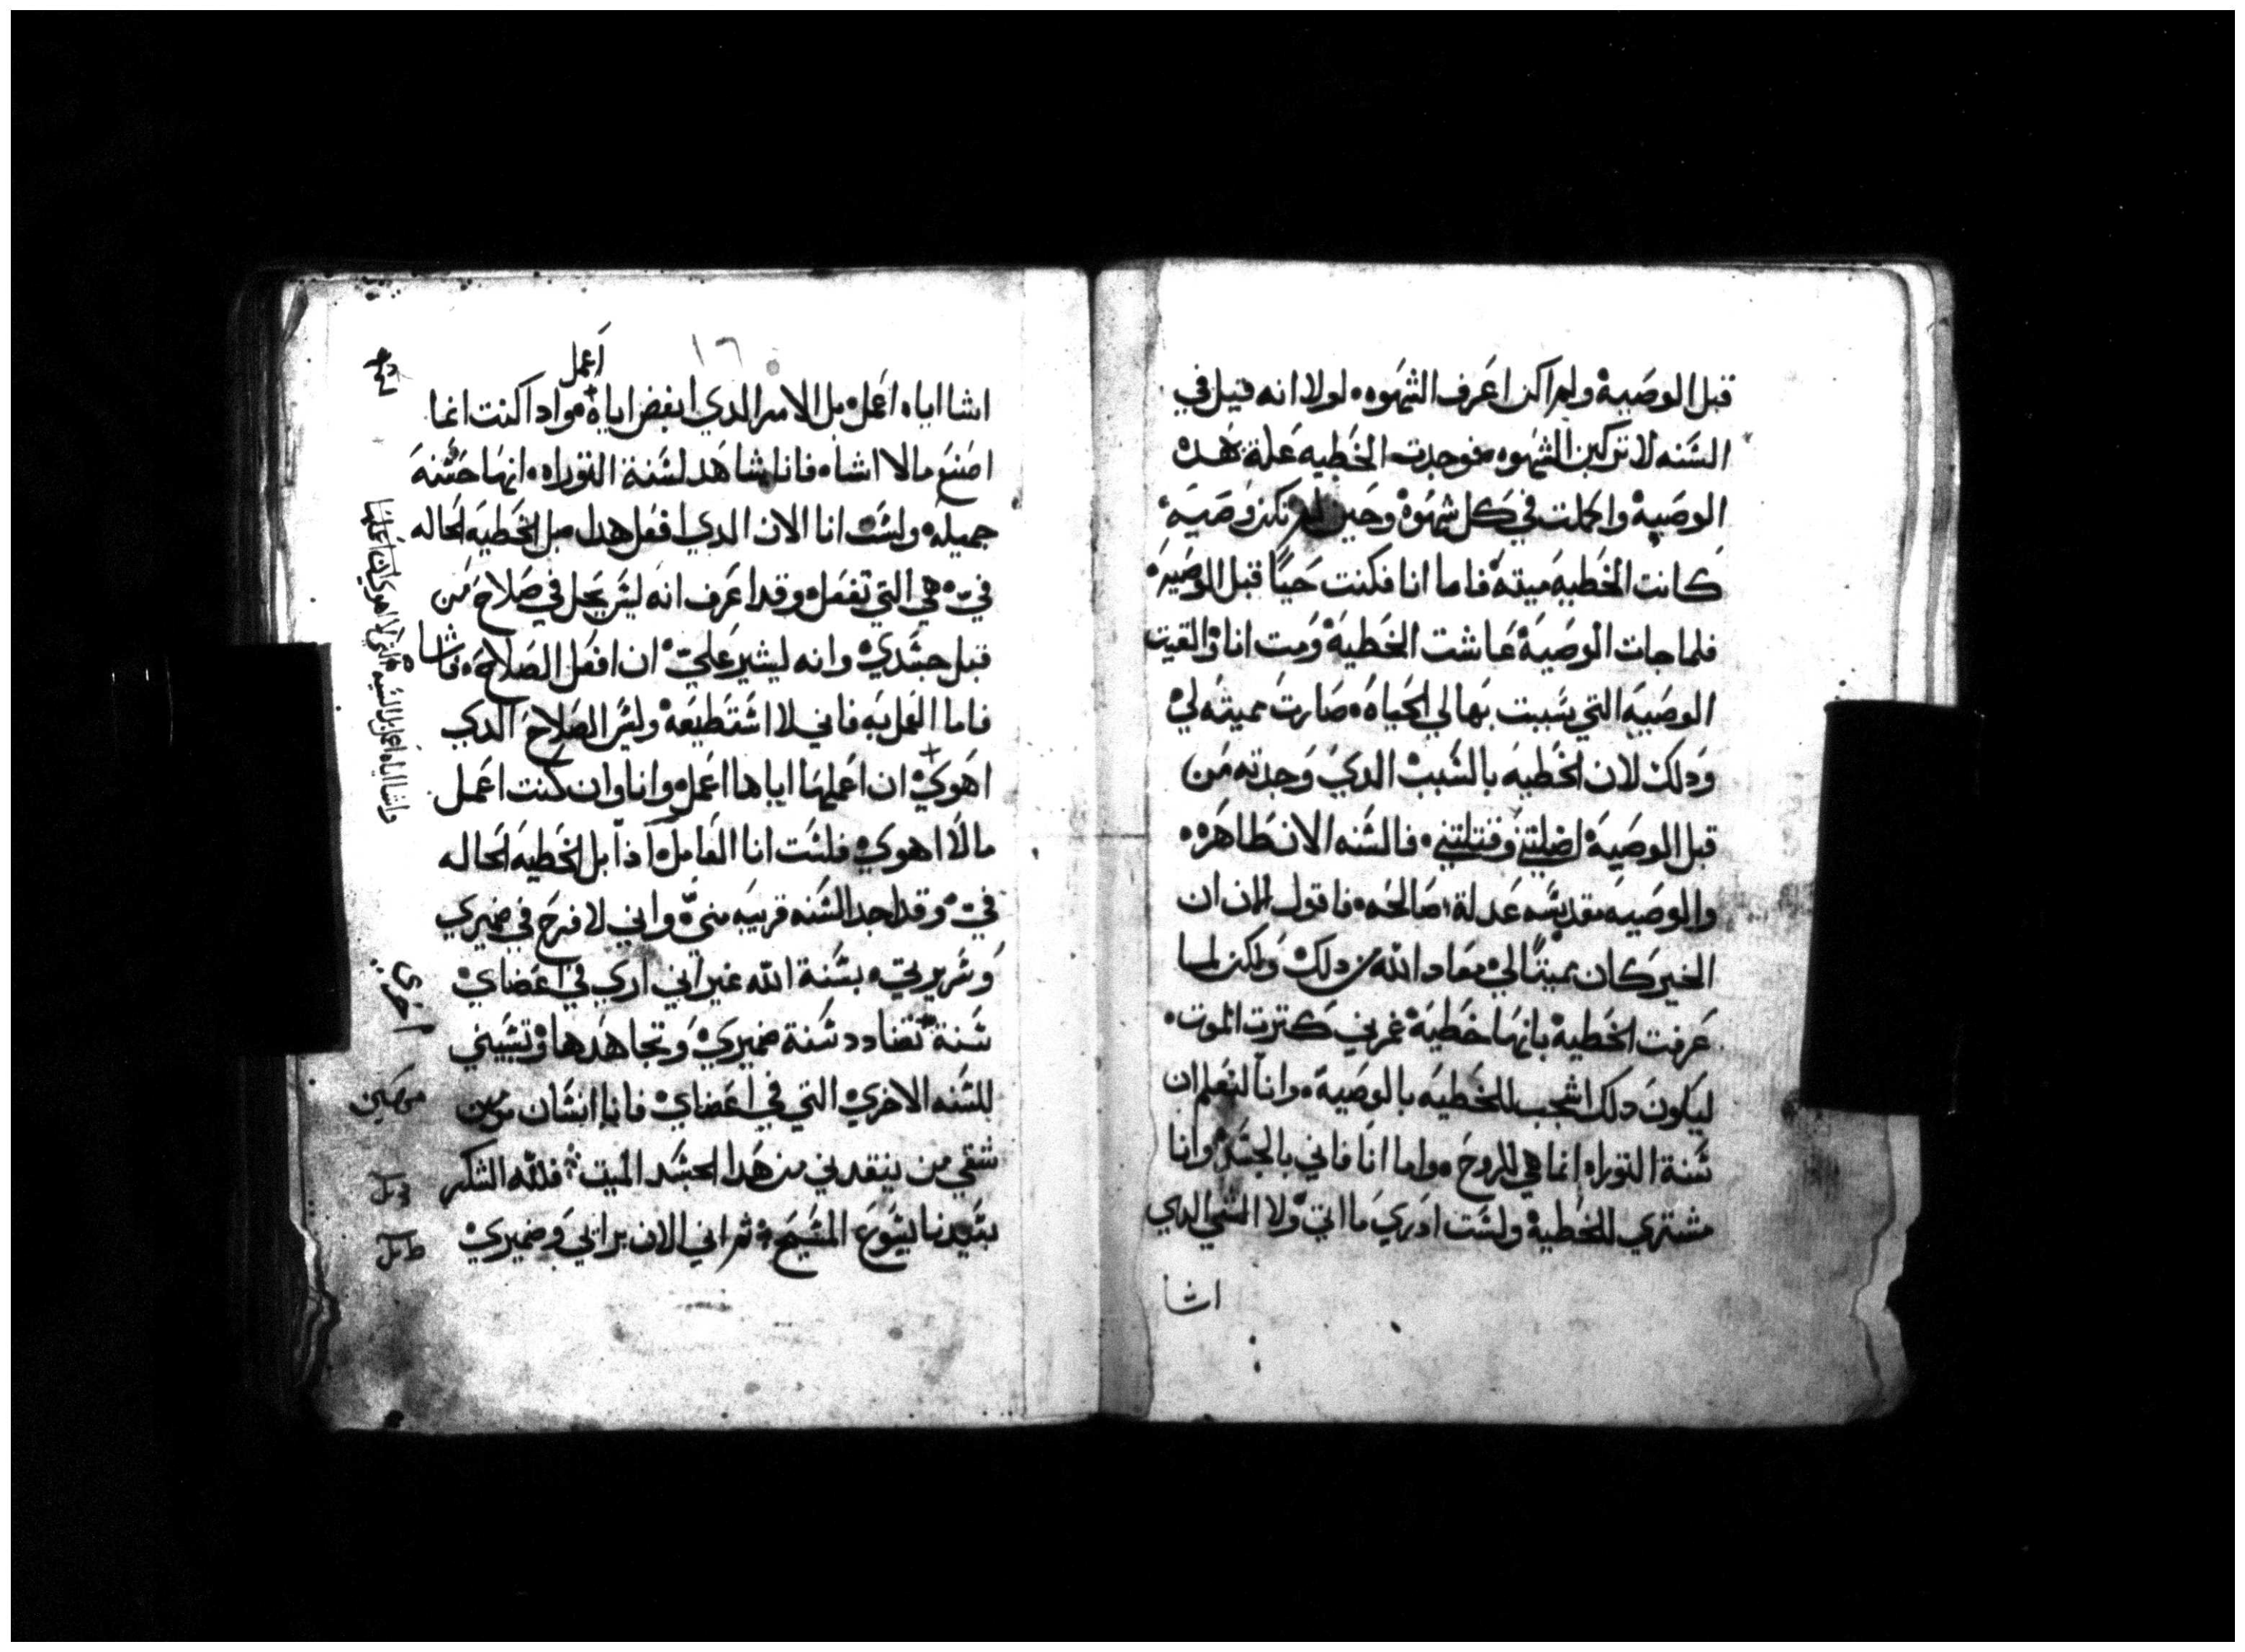 قبل الوصيه ولم اكن اعرف الشهوه لولا انه قيل في
السنه لا تركبن الشهوه فوجدت الخطيه علة هده
الوصيه واكملت في كل شهوه وحين لم تكن وصيه
كانت الخطيه ميته فاما انا فكنت حيًا قبل الوصيه
فلما جات الوصيه عاشت الخطيه ومت انا والقيت
الوصيه التي تسببت بها لي الحياه صارت مميته لي
ودلك لان الخطيه بالسبب الدي وجدته من
قبل الوصيه اضلتني وقتلتني فالسنه الان طاهره
والوصيه مقدسه عدلة صالحه فاقول الان ان
الخير كان مميتًا لي معاد الله من دلك ولكن لما
عرفت الخطية بانها خطية غمرني كترت الموت
ليكون دلك اشجب للخطيه بالوصية وانا لنعلم ان
سنة التوراه انما هي للروح واما انا فاني بالجسد وانا
مشترى للخطية ولست ادري ما اتي ولا الشي الدي
اشا
١٦
اعمل
اشا اياه اعمل بل الامر الدي ابغض اياه واد اكنت انما
اصنع مالا اشاه فانا شاهد لسنة التوراه انها حسنه
جميله ولست انا الان الدي افعل هدا بل الخطيه الحاله
في هي التي تفعل وقد اعرف انه ليس يحل في صلاح من
قبل جسدي وانه ليشير علي ان افعل الصلاح
فاما العمل به فاني لا استطيعه وليس الصلاح الدي
اهوي ان اعملها اياها اعمل وانا وان كنت اعمل
مالا اهوي فلست انا العامل اذًا بل الخطيه الحاله
في وقد اجد السنه قريبه مني واني لافرح في ضميري
وسريرتي بسنة الله غير اني اري في اعضاي
سنة تضادد سنة ضميري وتجاهدها وتسبيني
للسنه الاخري التي في اعضاي فانا انسان
شقي من ينقدني من هدا الجسد الميت فلله الشكر
بسيدنا يسوع المسيح ثم اني الان برايي وضميري
اخري
مسكين